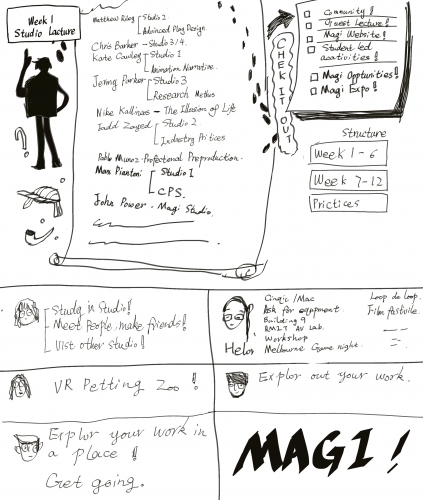 Week 1
Studio Lecture
Matthew Riley Studio 2
Advanced Play Design.
Chris Barker - Studio 3/4.
Kate Cawley Studio 1
Animation Narrative.
Jenny Parker Studio 3
Research Methos
Nike Kallinas - The Illusion of Life
Tadd Zayed Studio 2
Industry Prtices
Pablo Munoz - Profectional Preproduction.
Max Piantoni Studio 1
CPS.
John Power - Magi Studio.
CHEK IT OUT
Community!
Guest Lecture!
Magi Website!
Student led
acativities!
Magi Opptunities!
Magi Expo!
Structure
Week 1-6
Week 7-12
Prictices
Study in Studio!
Meet People, make friends!
Vist other Studio!
Helos
/Mac
Ask for eqqpment.
Building 9
AV Lab.
Workshop
Melbourne Game night.
Loop de loop.
Film
VR Petting Zoo!
Explor out your work.
Explor your work in
a place!
Get going.
MAGI!